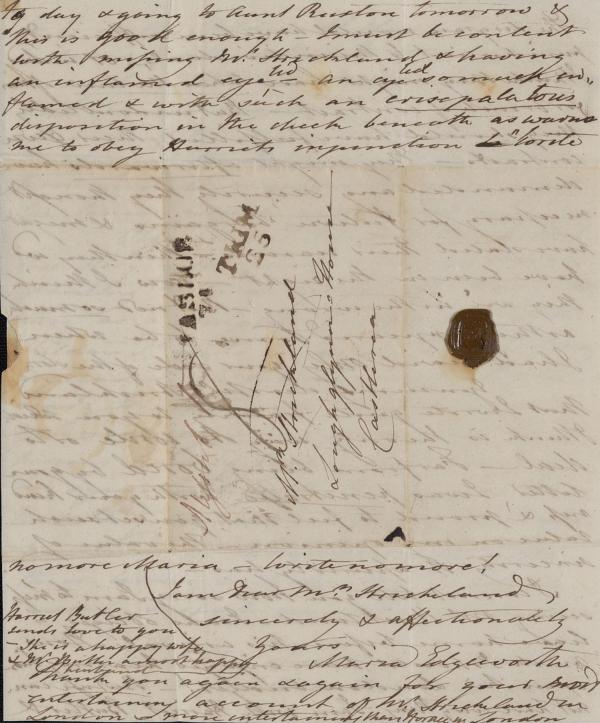 to day & going to Aunt Ruxton tomorrow &
this is good enough - I must be content
with missing Mrs. Strickland & having
an inflamed eye lid - an eye lid so much in-
flamed & with such an erisepalatous
disposition in the cheek beneath as warns
me to obey Harriets injunction to "write
NAVAN
TRIM
23
Mrs. Strickland
Loughglynn House
Castlerea
no more Maria - write no more!
I am Dear Mrs Strickland
sincerely & affectionately
Yours
Maria Edgeworth
Harriet Butler
sends love to you
- She is a happy wife
& Mr. Butler a most happy
Thank you again & again for your most
entertaining account of Mr Strickland in
London & more entertaining than Horace in London